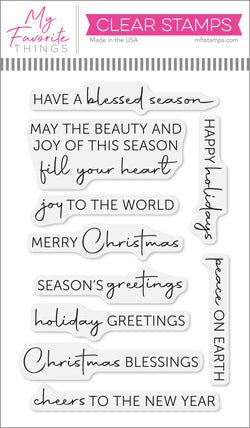 My
Favorite
THINGS
CLEAR STAMPS
Made in the USA
mftstamps.com
HAVE A blessed season
MAY THE BEAUTY AND
JOY OF THIS SEASON
fill your heart
joy TO THE WORLD
MERRY Christmas
SEASON'S greetings
holiday GREETINGS
Christmas BLESSINGS
cheers TO THE NEW YEAR
HAPPY holidays
peace ON EARTH